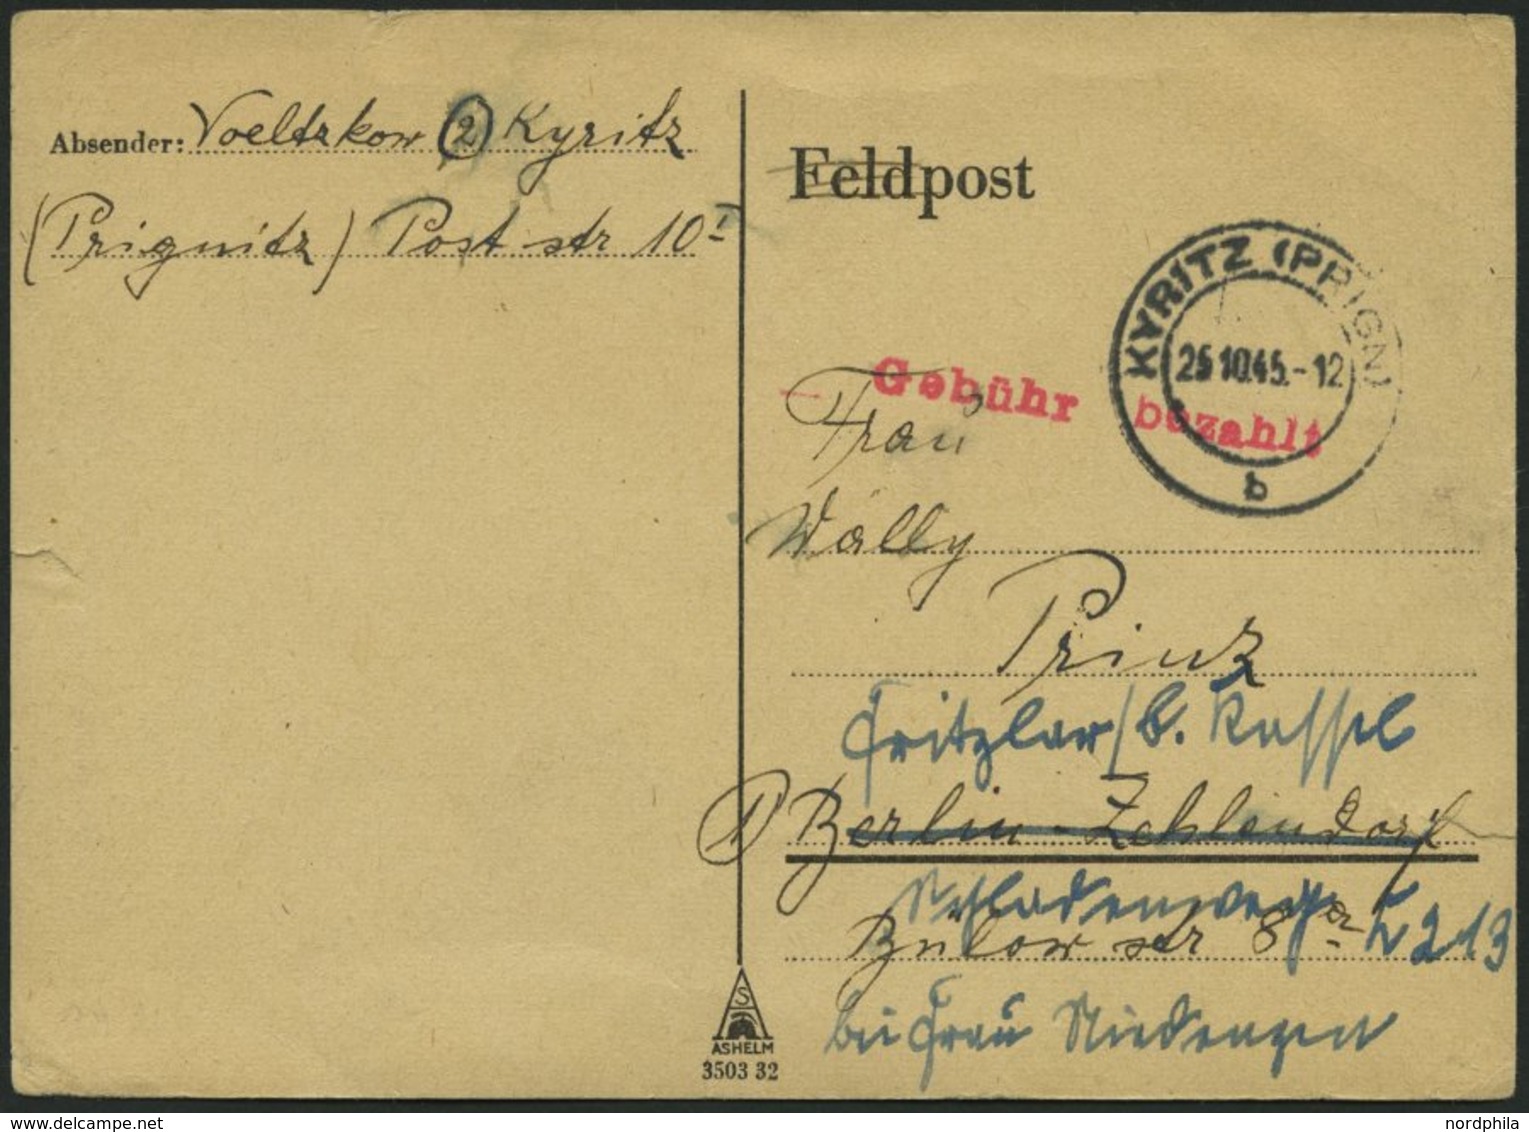 Absender: Voeltzkow (2) Kyritz
(Prignitz) Post str 10 I
Feldpost
KYRITZ (PRIGN)
25.10.45.-12
b
Gebühr bezahlt
Frau
Wally
Prinz
Fritzlar / b. Kassel
1) Berlin-Zehlendorf
Bülow str 8
213
bei Frau
S
ASHELM
3503 32
nordphila
delcampe.net